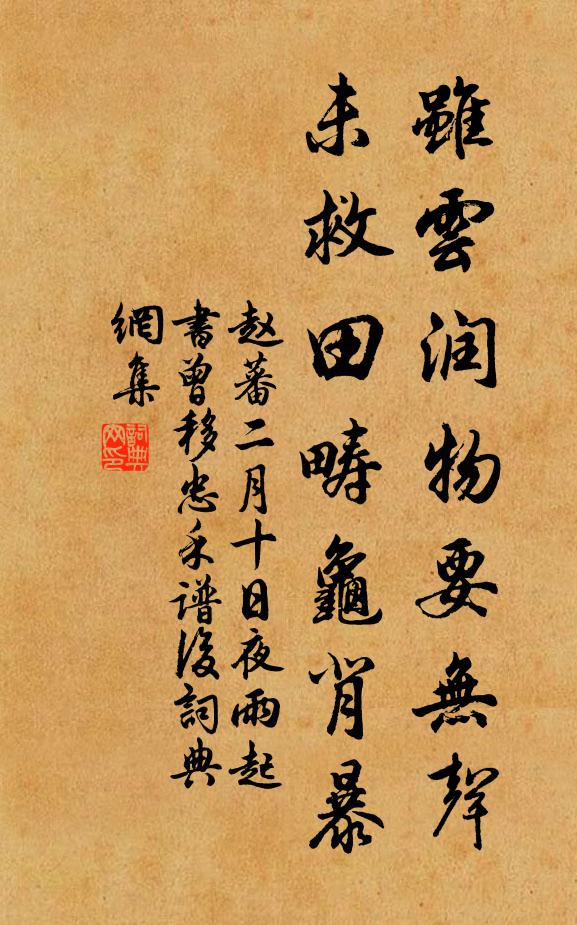 雖雲润物要無聲
未救田疇龜背暴
赵蕃二月十日夜雨起
書曾移忠禾谱後詞典
網集
詞典
网印